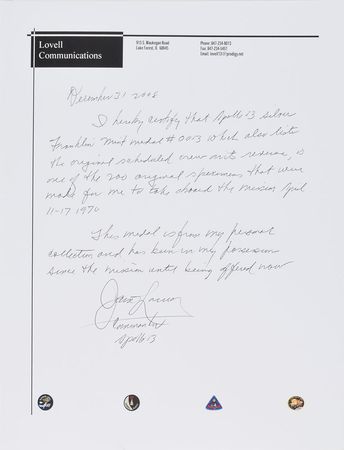 Lovell
Communications
915 S. Waukegan Road
Lake Forest, IL 60045
Phone: 847-234-0073
Fax: 847-234-5451
December 31 2008
I hereby certify that Apollo 13 silver
Franklin Mint medal # 0013 which also lists
the original scheduled crew on its reverse, is
one of the 200 original specimens that were
made for me to take aboard the mission April
11-17 1970
This medal is from my personal
collection and has been in my possession
since the mission until being offered now
Commander
Apollo 13